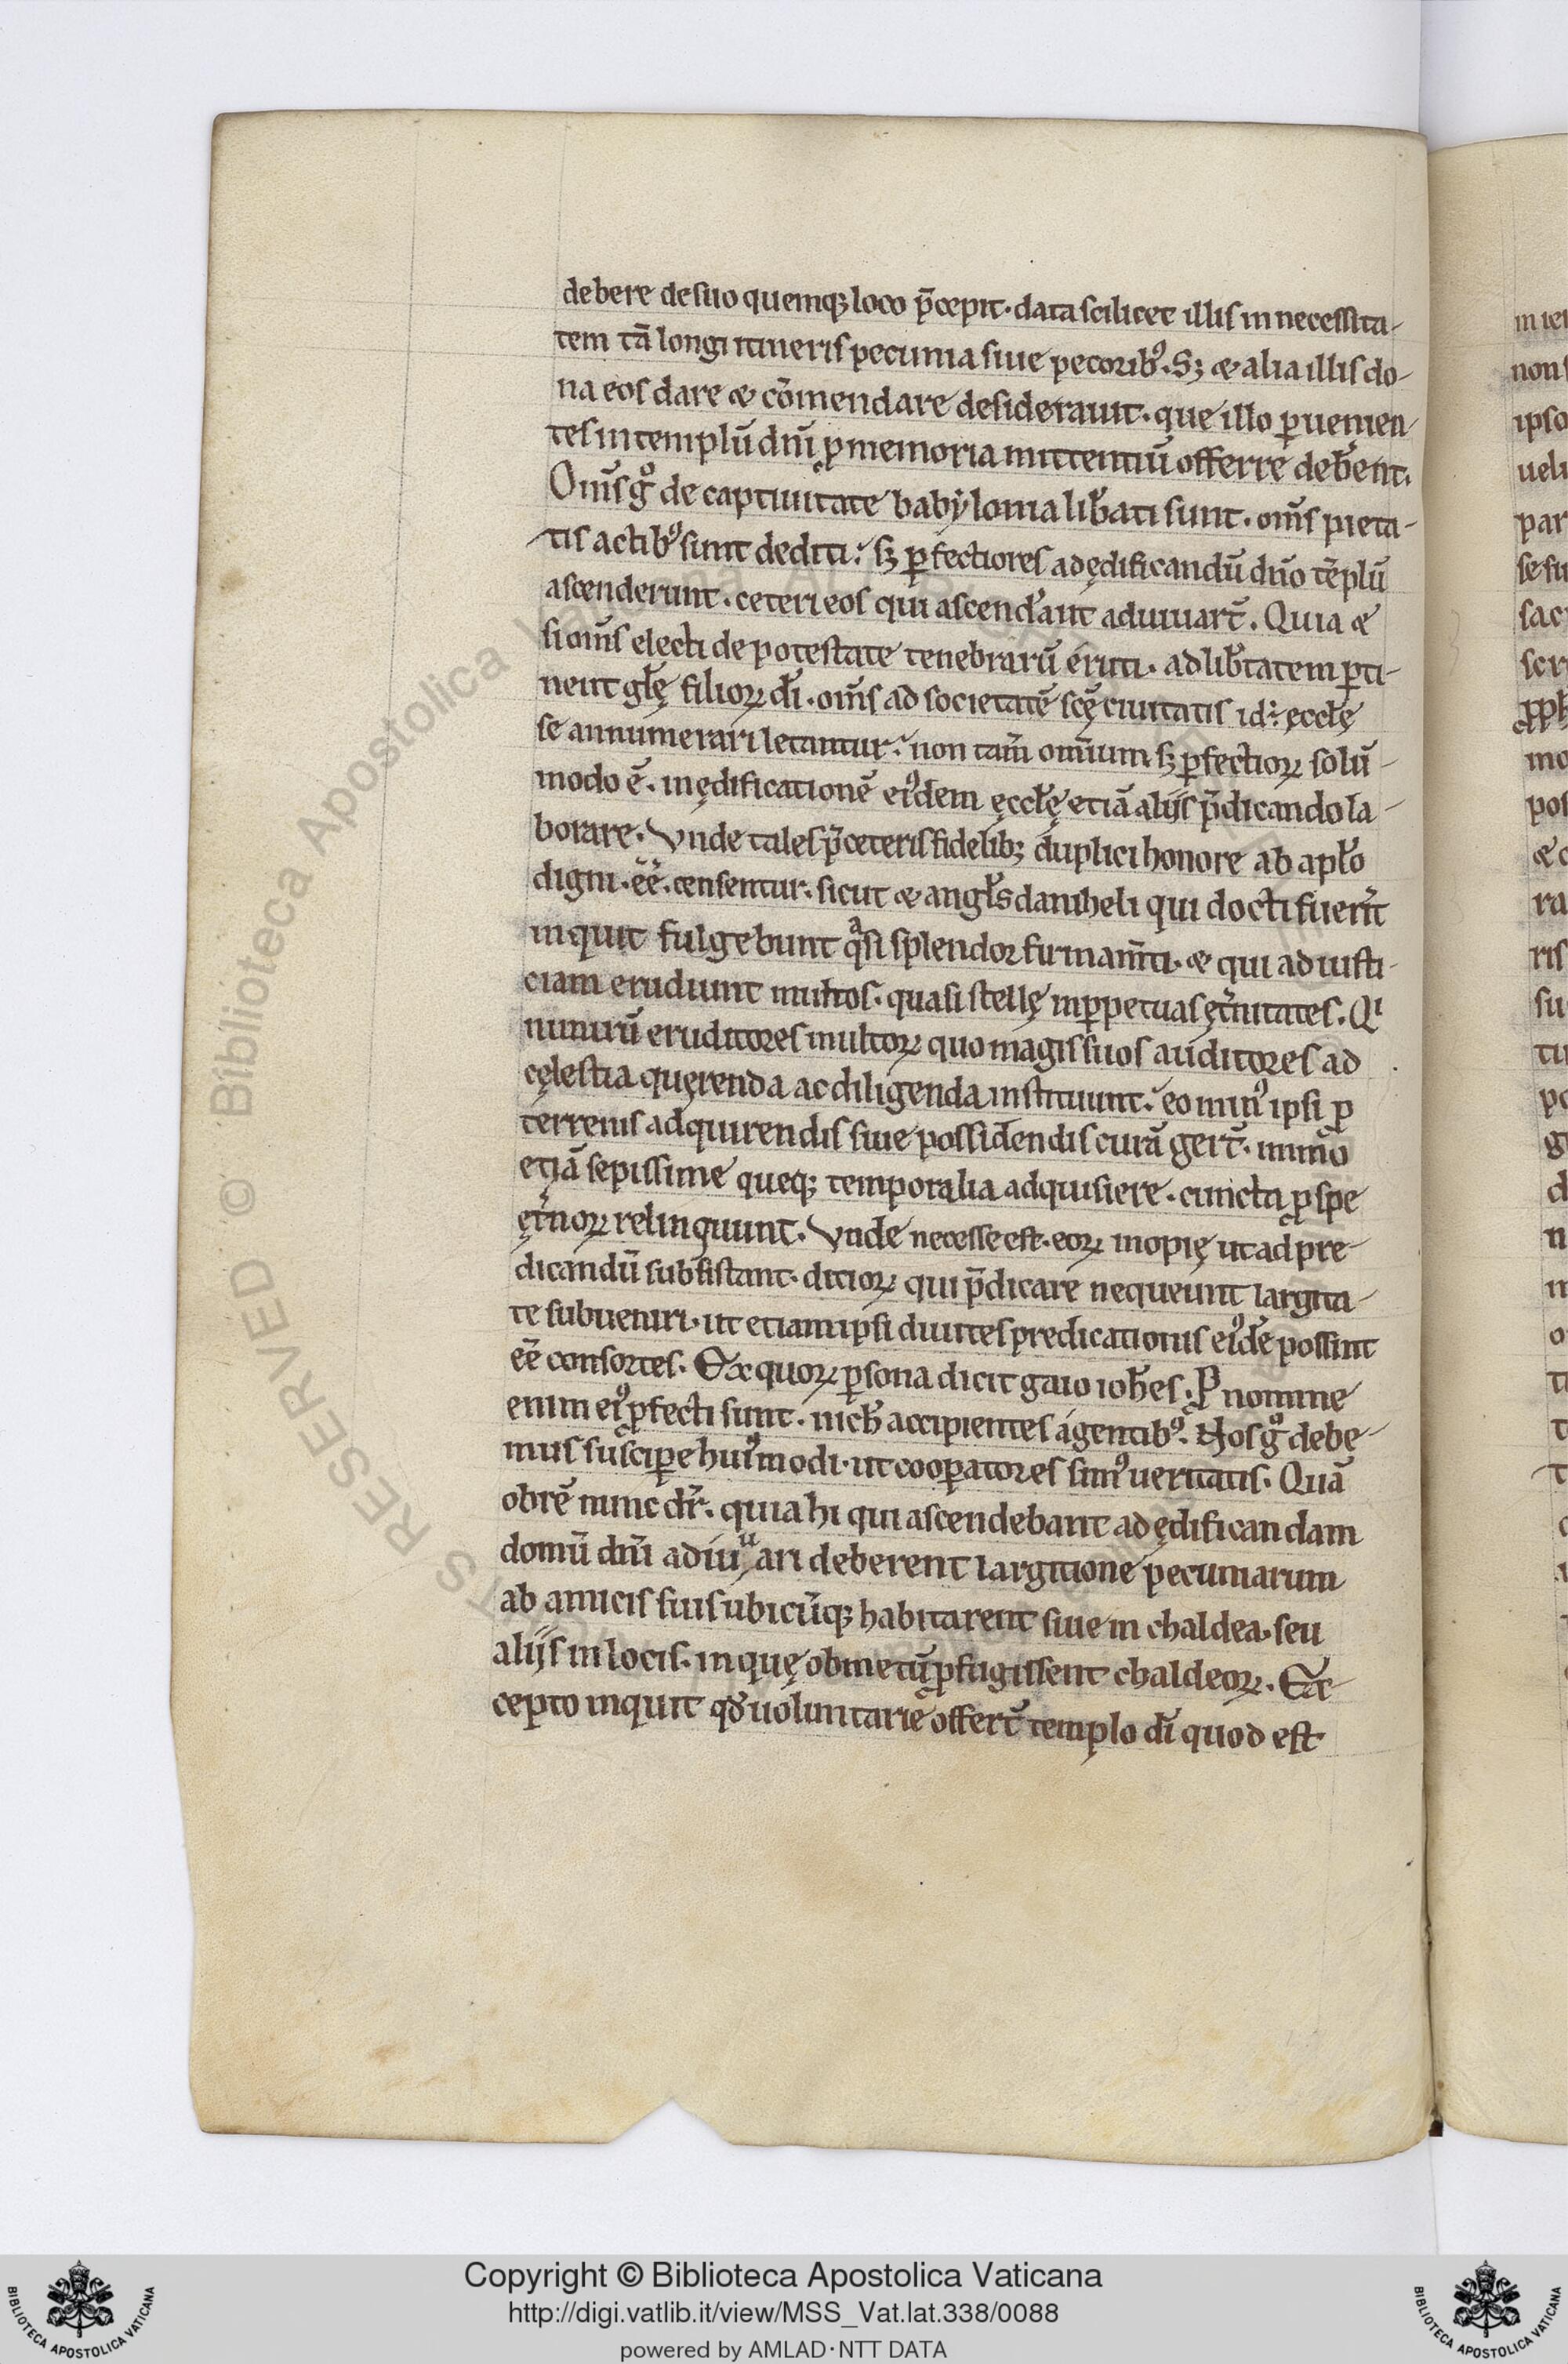 debere de suo quemq; loco p̄cepit. data scilicet illis in necessita-
tem tā longi itineris pecunia siue pecorib᷒. S; & alia illis do-
na eos dare & cōmendare desiderauit. que illo ꝑuenien-
tes in templū dn̄i ꝓ memoria mittentiū offerre deb̄ent.
Om̄s gͦ de captiuitate babẏlonia lib̄ati sunt. om̄s pieta-
tis actib᷒ sunt dediti. s; ꝑfectiores ad ędificandū dn̄o tēplū
ascenderunt. ceteri eos qui ascend̄ant adiuuart̄. Quia &
si om̄s electi de potestate tenebrarū eruti. ad lib̄tatem ꝑti-
nent gl̄ę filioꝝ dī. om̄s ad societatē scę̄ ciuitatis id.÷ ęccl̄ę
se annumerari letantur. non tam̄ omīum s; ꝑfectioꝝ solū-
modo ē. in ędificationē ei᷒dem ęccl̄ę etiā alijs p̄dicando la-
borare. Vnde tales p̄ ceteris fidelib; duplici honore ab apl̄o
digni. eē̄. censentur. sicut & angl̄s daniheli qui docti fuer̄t
inquit fulgebunt qᵃsi splendor firmam̄ti. & qui ad iusti-
ciam erudiunt multos. quasi stellę in ꝑpetuas ęt̄nitates. Qⁱ
nimirū eruditores multoꝝ quo magis suos auditores ad
cęlestia quęrenda ac diligenda instituunt. eo min᷒ ipsi ꝓ
terrenis adquirendis siue possidendis curā gert̄. immo
etiā sepissime queq; temporalia adquisiere. cuncta ꝓ spe
ęt̄noꝝ relinquunt. Vnde necesse est. eoꝝ inopię ut ad pre-
dicandū subsistant. ditioꝝ qui p̄dicare nequeunt largita-
te subueniri. ut etiam ipsi diuites predicationis ei᷒dē possint
eē̄ consortes. Ex quoꝝ ꝑsona dicit gaio ioh̄es. Ꝓ nomine
enim ei᷒ ꝓfecti sunt. nich̄ accipientes a gentib᷒. Nos gͦ debe-
mus suscipe huīmodi. ut cooꝑatores sim᷒ ueritatis. Quā
obrē nunc dr̄. quia hi qui ascendebant ad ędificandam
domū dn̄i adiuᵘari deberent largitione pecuniarum
ab amicis suis ubicūq; habitarent siue in chaldea. seu
alijs in locis. in quę ob metū ꝓfugissent chaldeoꝝ. Ex-
cepto inquit qd̄ uoluntarie offert̄ templo dī quod est
Copyright © Biblioteca Apostolica Vaticana
http://digi.vatlib.it/view/MSS_Vat.lat.338/0088
powered by AMLAD·NTT DATA